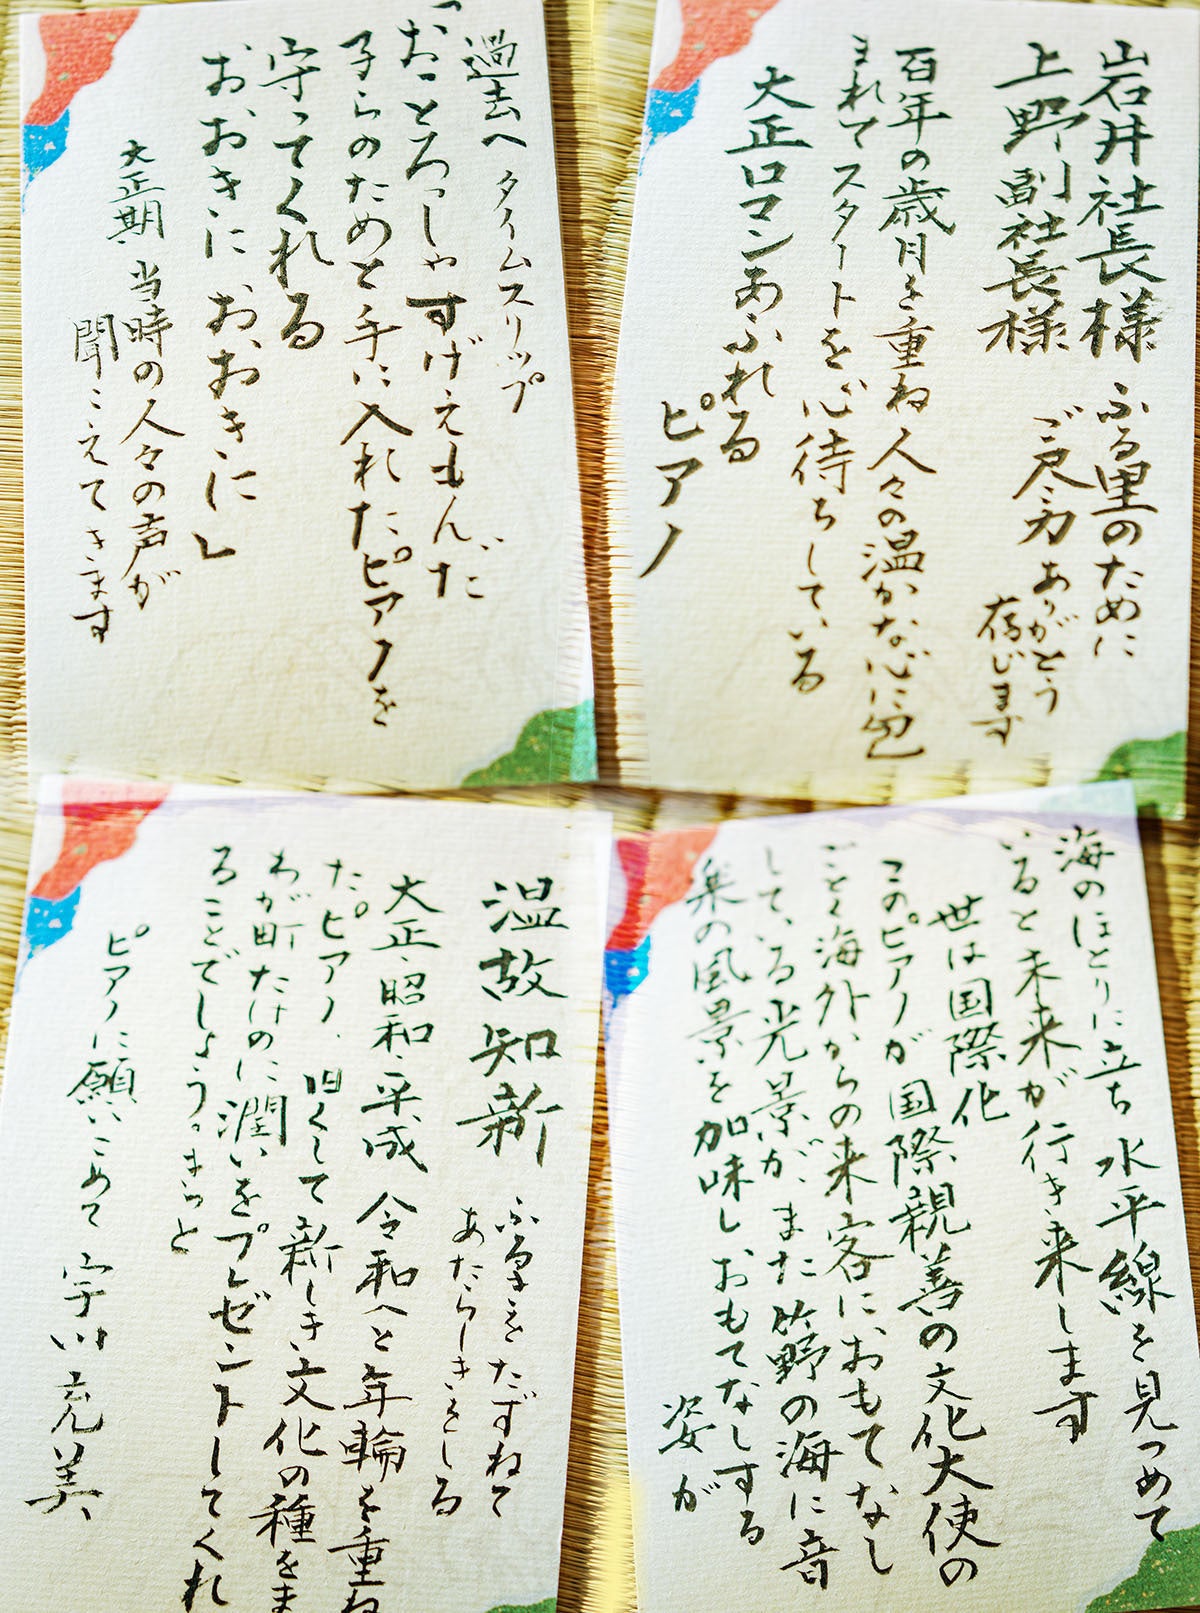 岩井社長様
上野副社長様
ふる里のために
ご尽力ありがとう
存じます
百年の歳月を重ね人々の温かな心に包
まれてスタートを心待ちしている
大正ロマンあふれる
ピアノ
過去へタイムスリップ
「おっとろっしゃすげえもんだ
子らのためと手に入れたピアノを
守ってくれる
おゝおきにおゝおきに」
大正期、当時の人々の声が
聞こえてきます
海のほとりに立ち水平線を見つめて
いると未来が行き来します
世は国際化
このピアノが国際親善の文化大使の
ごとく海外からの来客におもてなし
している光景が、また竹野の海に音
楽の風景を加味しおもてなしする
姿が
温故知新
ふるきをたずねて
あたらしきをしる
大正・昭和・平成 令和へと年輪を重ね
たピアノ、旧くして新しき文化の種をま
わが町たけのに潤いをプレゼントしてくれ
ることでしょう。きっと
ピアノに願いこめて 宇川充美